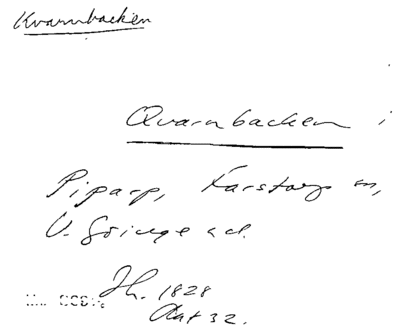 Kvarnbacken
Qvarnbacken i
Piparp, Farstorps sn,
V. Göinge hd.
Jh. 1828
Akt 32.